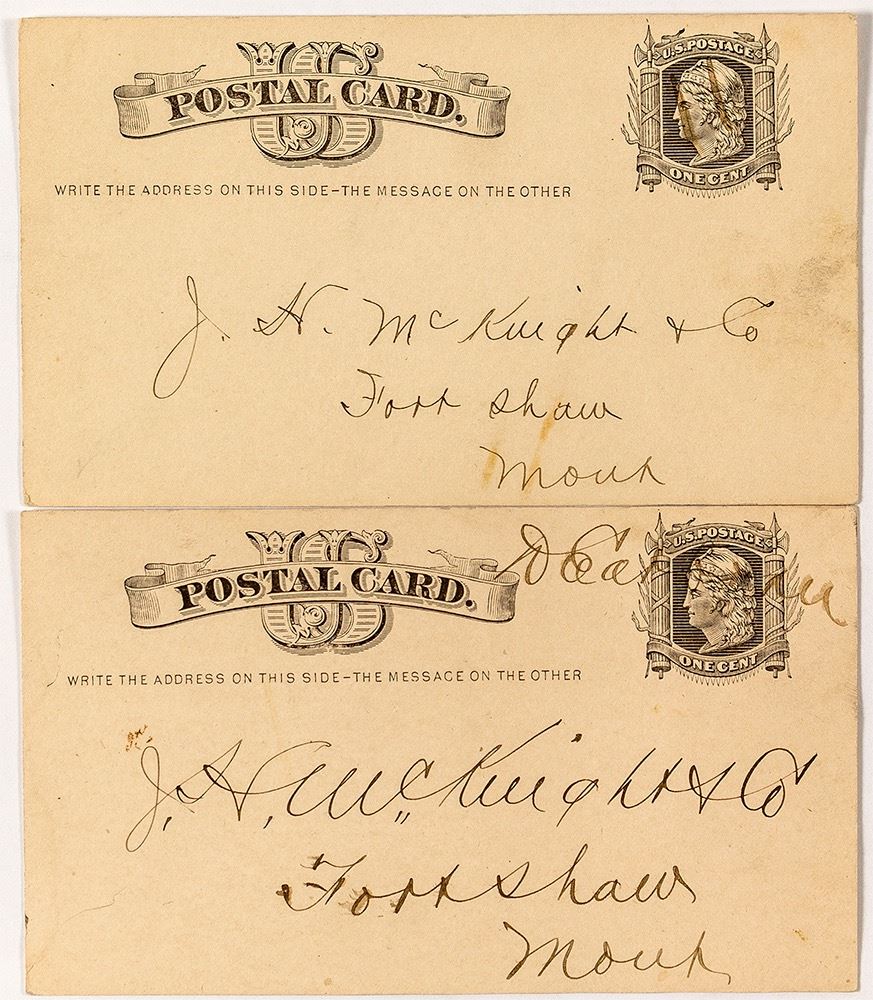 US
POSTAL CARD.
U.S. POSTAGE
ONE CENT
WRITE THE ADDRESS ON THIS SIDE–THE MESSAGE ON THE OTHER
J. H. McKnight & Co
Fort Shaw
Mont
US
POSTAL CARD.
U.S. POSTAGE
ONE CENT
WRITE THE ADDRESS ON THIS SIDE–THE MESSAGE ON THE OTHER
J, H, McKnight & Co
Fort Shaw
Mont